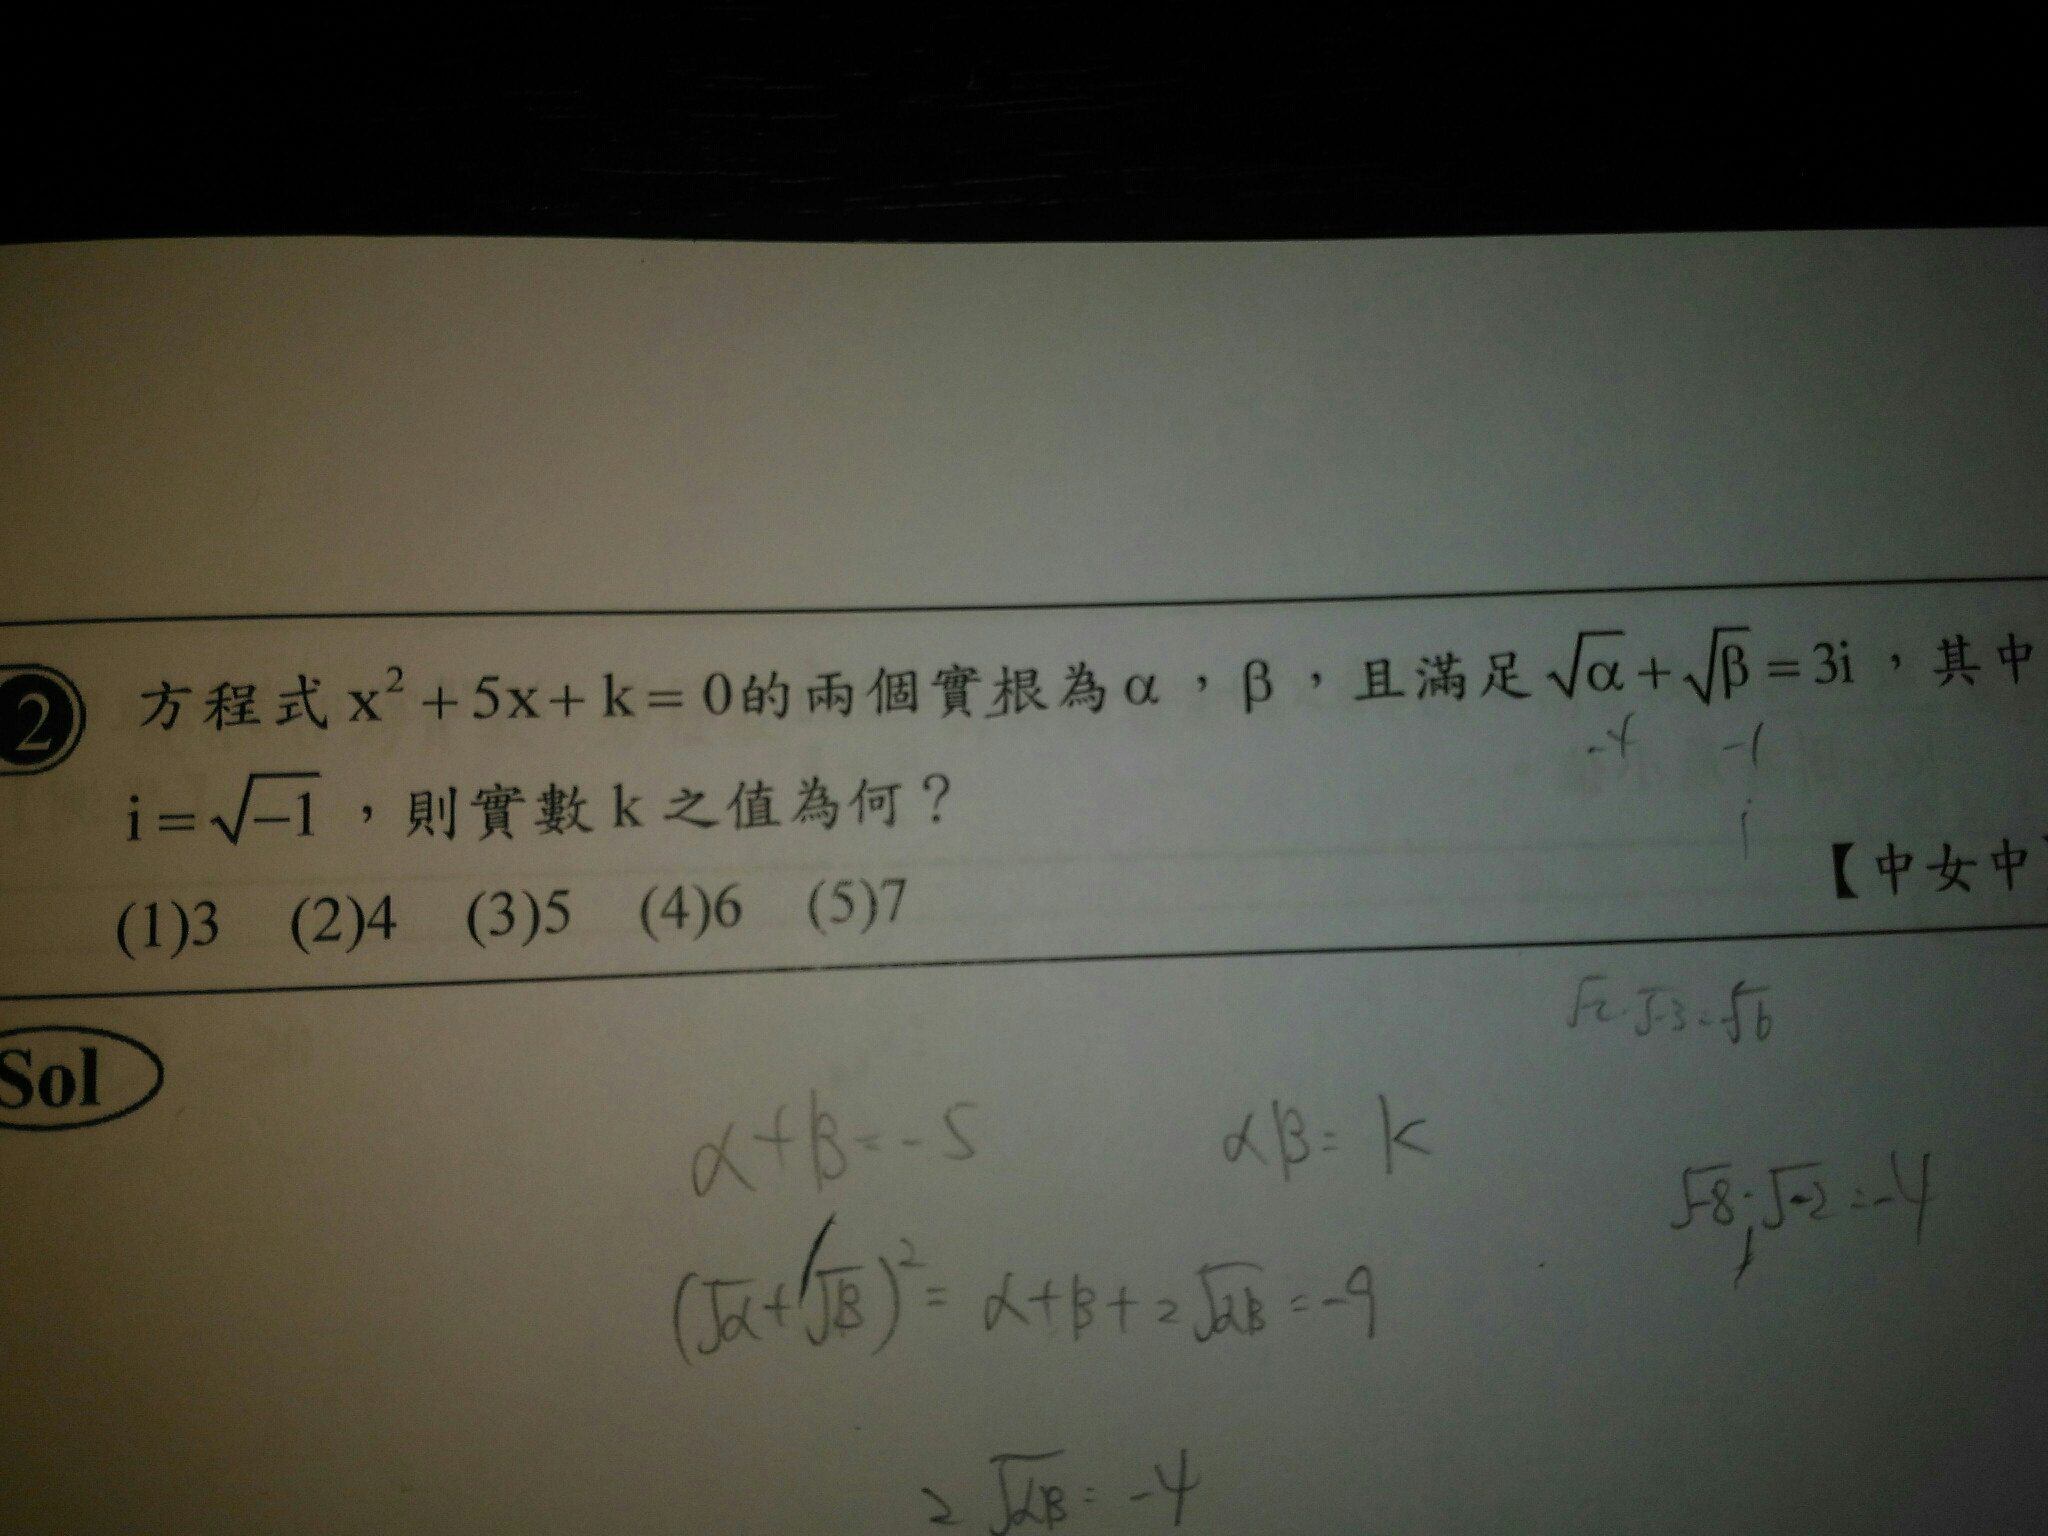 2 方程式 x² + 5x + k = 0的兩個實根為α,β,且滿足√α + √β = 3i,其中
-4 -1
i = √-1,則實數 k 之值為何?
i
(1)3 (2)4 (3)5 (4)6 (5)7
【中女中】
√-2·√-3=-√6
Sol
α+β=-5 αβ=k
√-8·√-2=-4
(√α+√β)²= α+β+2√αβ=-9
2√αβ=-4